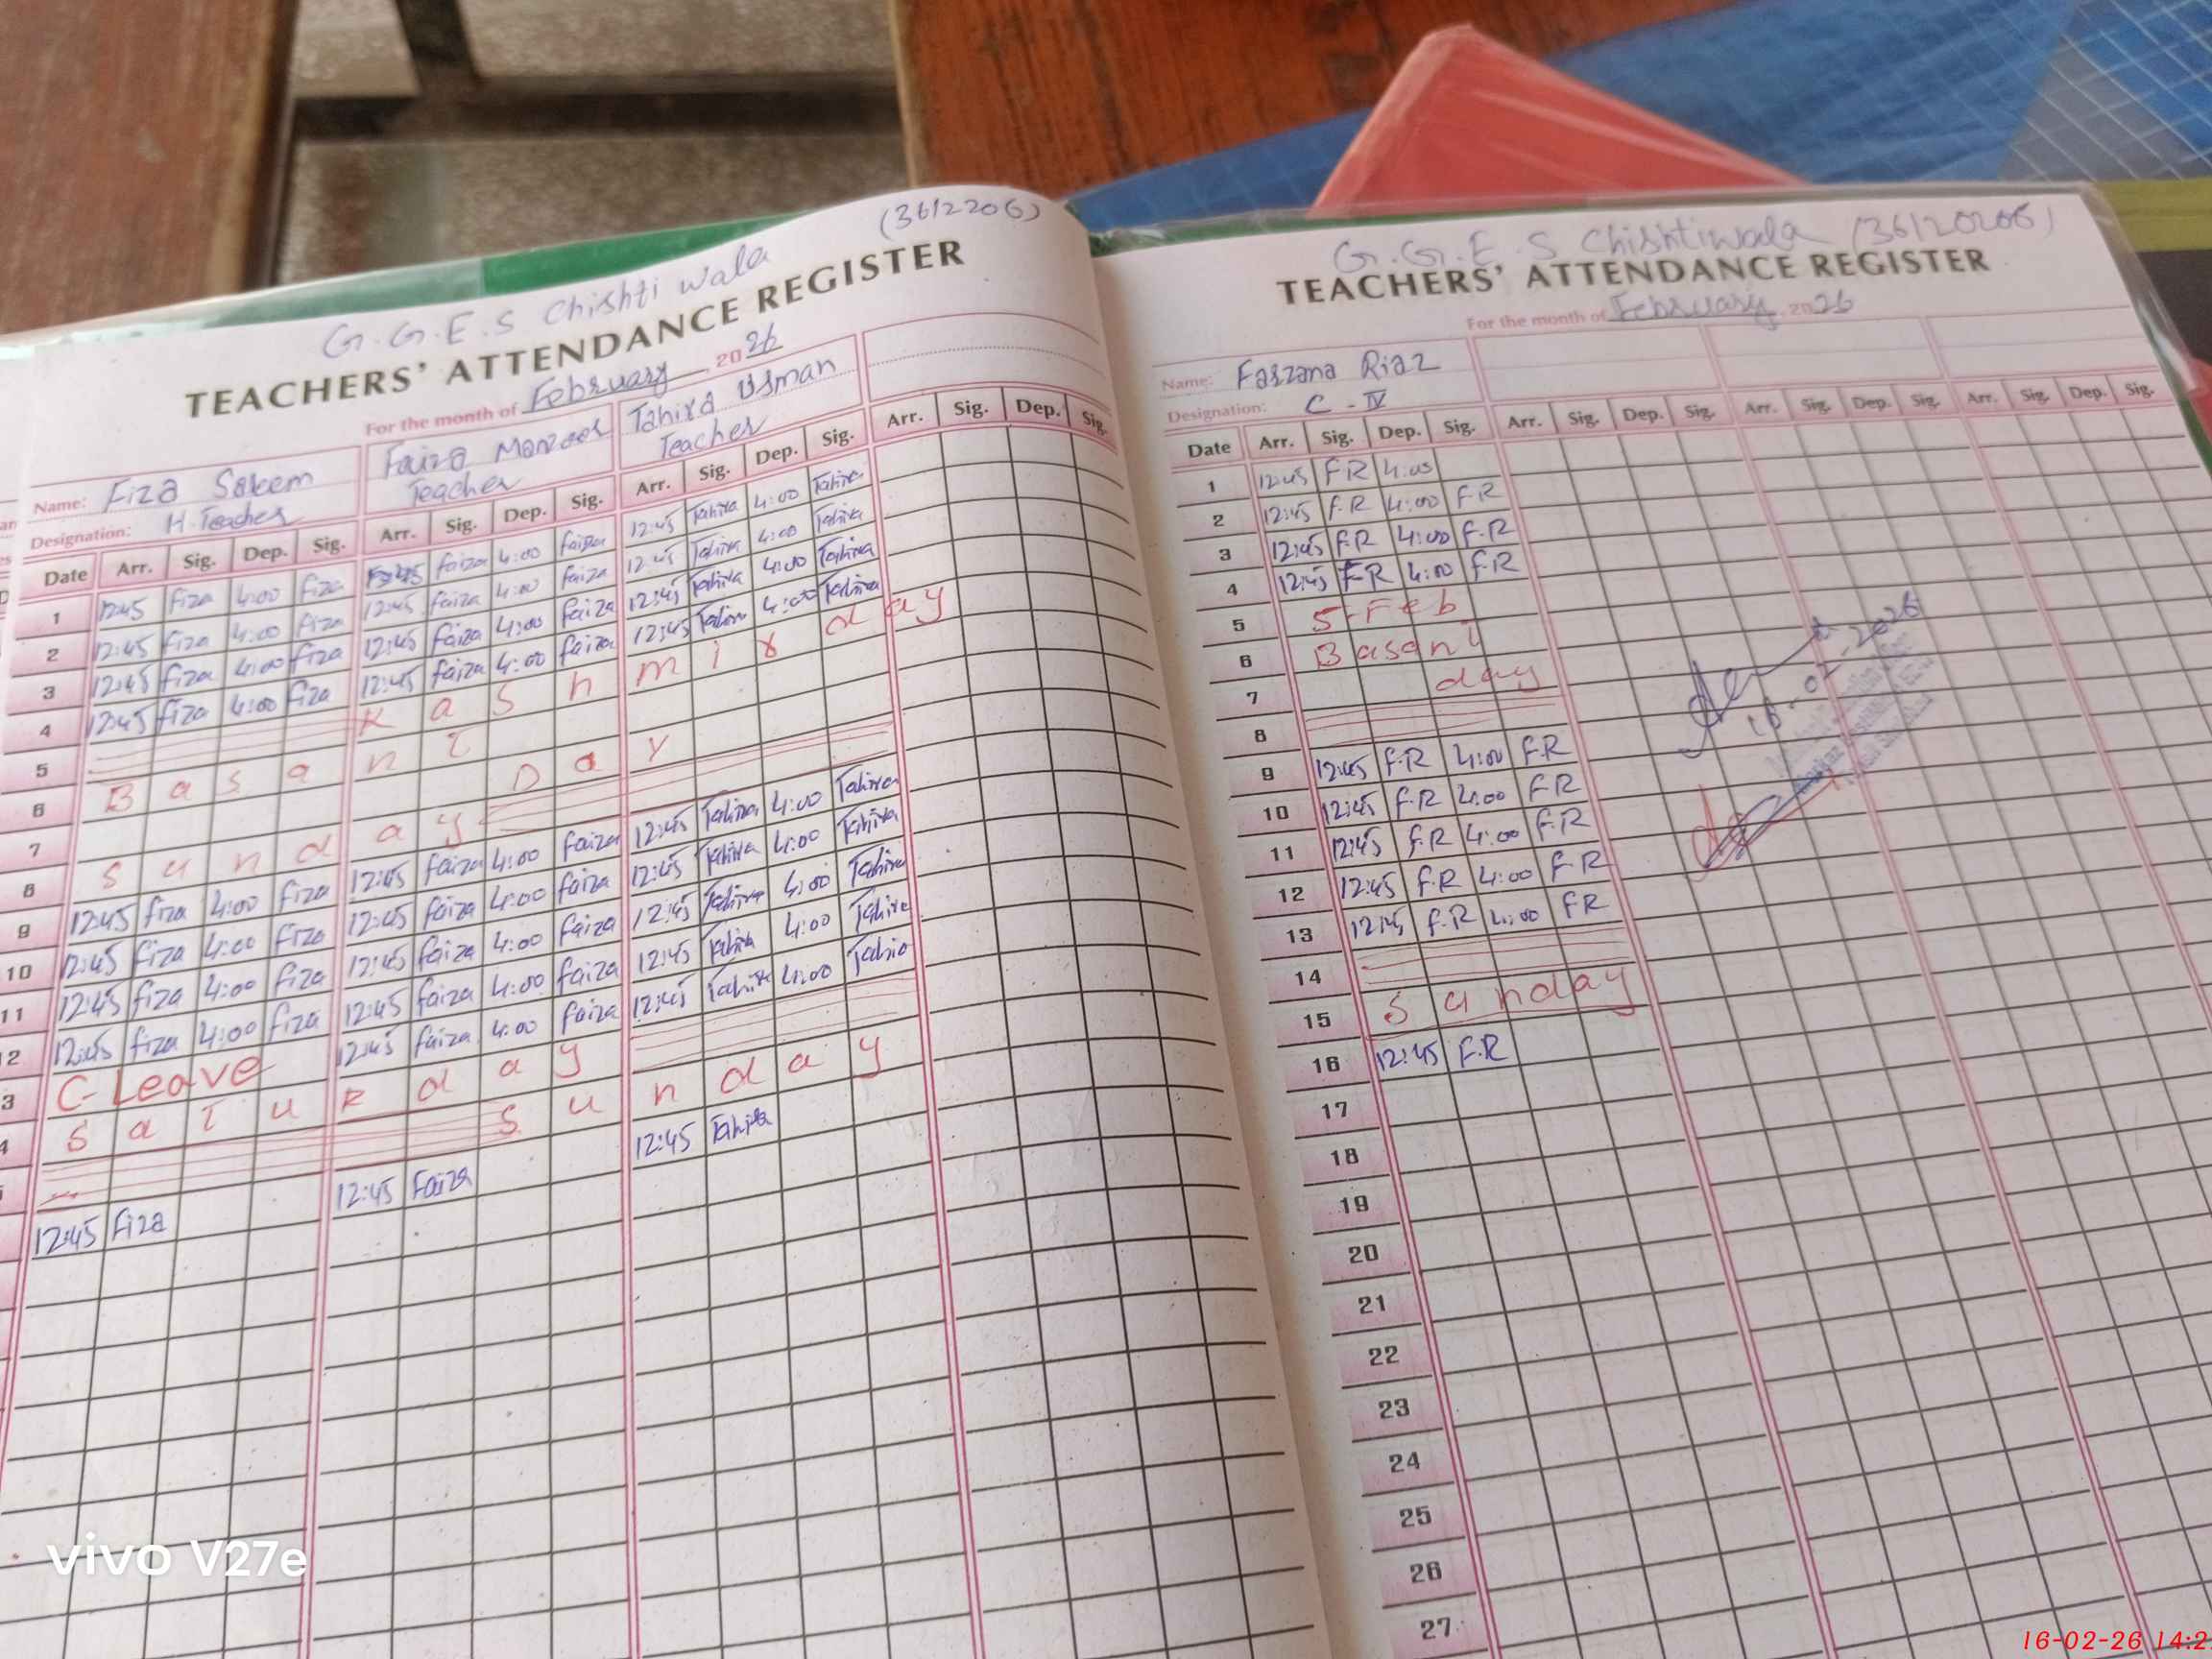 (3612206)
G.G.E.S Chishti wala
TEACHERS' ATTENDANCE REGISTER
For the month of February 2026
Name: Fiza Saleem Faiza Manzoor Tahira Usman
Designation: H.Teacher Teacher Teacher
Date Arr. Sig. Dep. Sig. Arr. Sig. Dep. Sig. Arr. Sig. Dep. Sig. Arr. Sig. Dep. Sig.
1 12:45 Fiza 4:00 Fiza faiza 4:00 faiza 12:45 Tahira 4:00 Tahira
2 12:45 Fiza 4:00 Fiza 12:45 faiza 4:00 faiza 12:45 Tahira 4:00 Tahira
3 12:45 Fiza 4:00 Fiza 12:45 faiza 4:00 faiza 12:45 Tahira 4:00 Tahira
4 12:45 Fiza 4:00 Fiza 12:45 faiza 4:00 faiza 12:45 Tahira 4:00 Tahira
5 Kashmir day
6 Basant Day
7
8 Sunday
9 12:45 fiza 4:00 fiza 12:45 faiza 4:00 faiza 12:45 Tahira 4:00 Tahira
10 12:45 fiza 4:00 fiza 12:45 faiza 4:00 faiza 12:45 Tahira 4:00 Tahira
11 12:45 fiza 4:00 fiza 12:45 faiza 4:00 faiza 12:45 Tahira 4:00 Tahira
2 12:45 fiza 4:00 fiza 12:45 faiza 4:00 faiza 12:45 Tahira 4:00 Tahira
3 C-Leave 12:45 faiza 4:00 faiza 12:45 Tahira 4:00 Tahira
4 Saturday
Sunday
12:45 Fiza 12:45 Faiza 12:45 Tahira
G.G.E.S Chishtiwala (36120206)
TEACHERS' ATTENDANCE REGISTER
For the month of February 2026
Name: Farzana Riaz
Designation: C-IV
Date Arr. Sig. Dep. Sig. Arr. Sig. Dep. Sig. Arr. Sig. Dep. Sig. Arr. Sig. Dep. Sig.
1 12:45 F.R 4:05
2 12:45 F.R 4:00 F.R
3 12:45 F.R 4:00 F.R
4 12:45 F.R 4:00 F.R
5 5-Feb
6 Basant
7 day
8
9 12:45 F.R 4:00 F.R
10 12:45 F.R 4:00 F.R
11 12:45 F.R 4:00 F.R
12 12:45 F.R 4:00 F.R
13 12:45 F.R 4:00 FR
14
15 Sunday
16 12:45 F.R
17
18
19
20
21
22
23
24
25
26
27
16-02-2026
vivo V27e
16-02-26 14:2